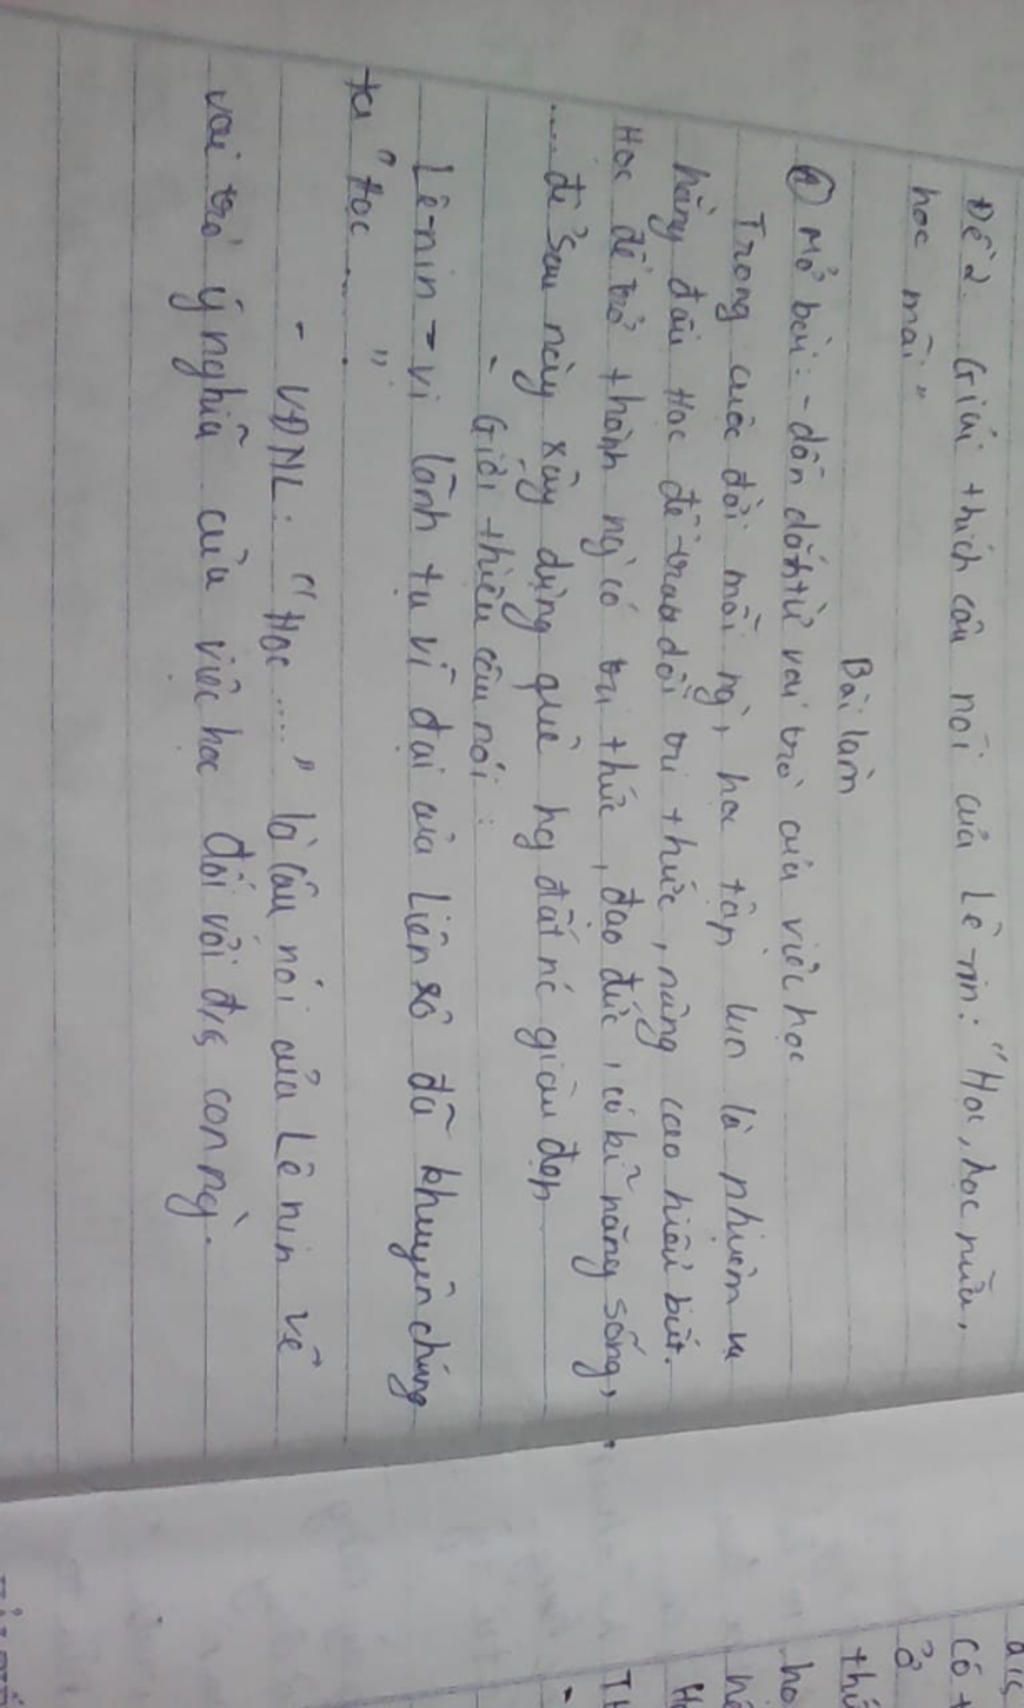 Đề 2. Giải thích câu nói của Lê nin: "Học, học nữa,
học mãi"
Bài làm
① Mở bài: - dẫn dắt từ vai trò của việc học
Trong cuộc đời mỗi ng`, học tập luôn là nhiệm vụ
hàng đầu Học để trau dồi tri thức, nâng cao hiểu biết.
Học để trở thành ng` có tri thức, đạo đức, có kĩ năng sống,
.... để sau này xây dựng quê hg đất nc giàu đẹp
- Giới thiệu câu nói:
Lê-nin - vị lãnh tụ vĩ đại của Liên Xô đã khuyên chúng
ta "Học ....."
- VĐNL: "Học ...." là câu nói của Lê nin về
vai trò ý nghĩa của việc học đối với con ng`.